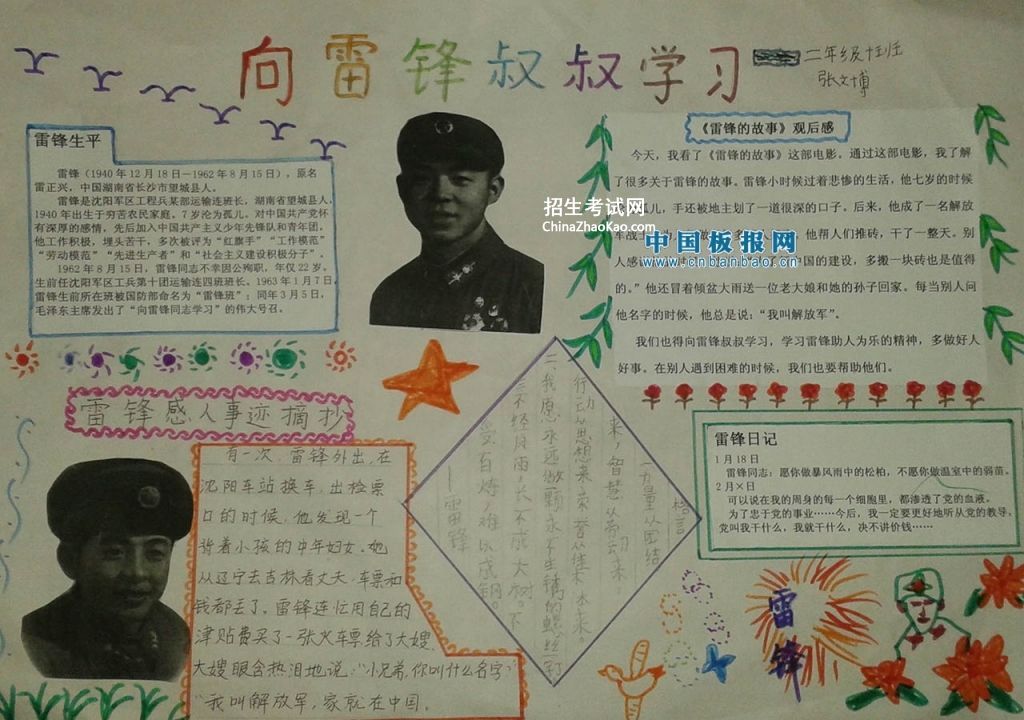 向雷锋叔叔学习
二年级十班
张文博
雷锋生平
雷锋（1940年12月18日—1962年8月15日），原名
雷正兴，中国湖南省长沙市望城县人。
雷锋是沈阳军区工程兵某部运输连班长，湖南省望城县人。
1940年出生于穷苦农民家庭。7岁沦为孤儿。对中国共产党怀
有深厚的感情，先后加入中国共产主义少年先锋队和青年团。
他工作积极，埋头苦干，多次被评为“红旗手”“工作模范”
“劳动模范”“先进生产者”和“社会主义建设积极分子”。
1962年8月15日，雷锋同志不幸因公殉职，年仅22岁。
生前任沈阳军区工兵第十团运输连四班班长。1963年1月7日，
雷锋生前所在班被国防部命名为“雷锋班”；同年3月5日，
毛泽东主席发出了“向雷锋同志学习”的伟大号召。
招生考试网
ChinaZhaoKao.com
中国板报网
www.cnbanbao.cn
《雷锋的故事》观后感
今天，我看了《雷锋的故事》这部电影。通过这部电影，我了解
了很多关于雷锋的故事。雷锋小时候过着悲惨的生活，他七岁的时候
孤儿，手还被地主划了一道很深的口子。后来，他成了一名解放
军战士，他帮人们推砖，干了一整天。别
人感谢国的建设，多搬一块砖也是值得
的。”他还冒着倾盆大雨送一位老大娘和她的孙子回家。每当别人问
他名字的时候，他总是说：“我叫解放军”。
我们也得向雷锋叔叔学习，学习雷锋助人为乐的精神，多做好人
好事。在别人遇到困难的时候，我们也要帮助他们。
雷锋感人事迹摘抄
有一次，雷锋外出，在
沈阳车站换车，出检票
口的时候，他发现一个
背着小孩的中年妇女。她
从辽宁去吉林看丈夫，车票和
钱都丢了。雷锋连忙用自己的
津贴费买了一张火车票给了大嫂，
大嫂眼含热泪地说：“小兄弟，你叫什么名字？”
“我叫解放军，家就在中国。”
格言
力量从团结
来，智慧从劳动来。
行动从思想来荣誉从集体来。
二、我愿永远做一颗永不生锈的螺丝钉
三不经风雨，长不成大树。不
受百炼，难以成钢。
——雷锋
雷锋日记
1月18日
雷锋同志：愿你做暴风雨中的松柏，不愿你做温室中的弱苗。
2月×日
可以说在我的周身的每一个细胞里，都渗透了党的血液。
为了忠于党的事业……今后，我一定要更好地听从党的教导，
党叫我干什么，我就干什么，决不讲价钱……
雷锋